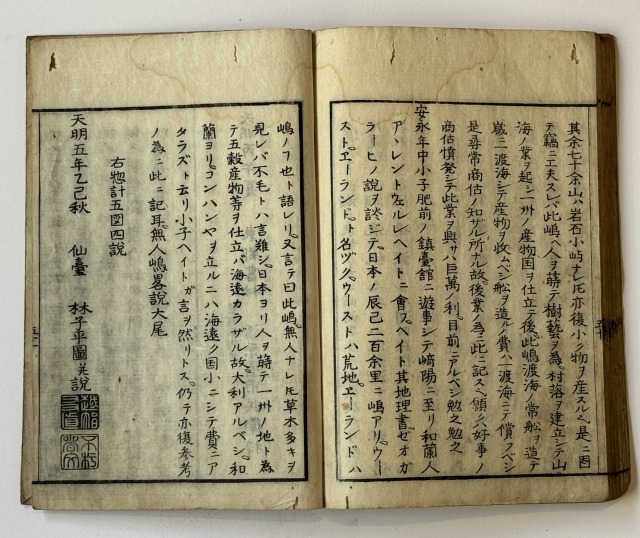 其余七十余山ハ岩石小嶋ナレ𪜈亦復小ク物ヲ産スルヿ是ニ因
テ竊ニ工夫スレバ此嶋ヘ人ヲ蒔テ樹藝ヲ為村落ヲ建立シテ山
海ノ業ヲ起シ一州ノ産物国ヲ仕立テ後此嶋渡海ノ常舩ヲ造テ
歳三渡海シテ産物ヲ收ムベシ舩ヲ造ルノ費ハ一渡海ニテ償フベシ
是尋常商估ノ知ザル所ナル故後業ノ為ニ此ニ記ス願クハ好事ノ
商估憤発シテ此業ヲ興サバ巨萬ノ利目前ニアルベシ勉之勉之
安永年中小子肥前ノ鎮臺館ニ遊事シテ﨑陽ニ至リ和蘭人
アヽレント左ルレヘイトニ會ス。ヘイト其地理書ゼオガ
ラーヒノ説ヲ談ジテ日本ノ辰巳二百余里ニ嶋アリ。ウー
ストエーランドト名ヅク。ウーストハ荒地エーランドハ
嶋ノヿ也ト語レリ。又言テ曰此嶋無人ナレ𪜈草木多キヲ
見レバ不毛トハ言難シ。日本ヨリ人ヲ蒔テ一州ノ地ト為
テ五穀産物等ヲ仕立バ海遠カラザル故大利アルベシ。和
蘭ヨリコンハンヤヲ立ルニハ海遠ク国小ニシテ費ニア
タラズト云リ小子ヘイトガ言ヲ然リトス。仍テ亦復参考
ノ為ニ此ニ記耳。無人嶋畧説大尾
右惣計五図四説
天明五年乙巳秋　仙臺　林子平圖并説